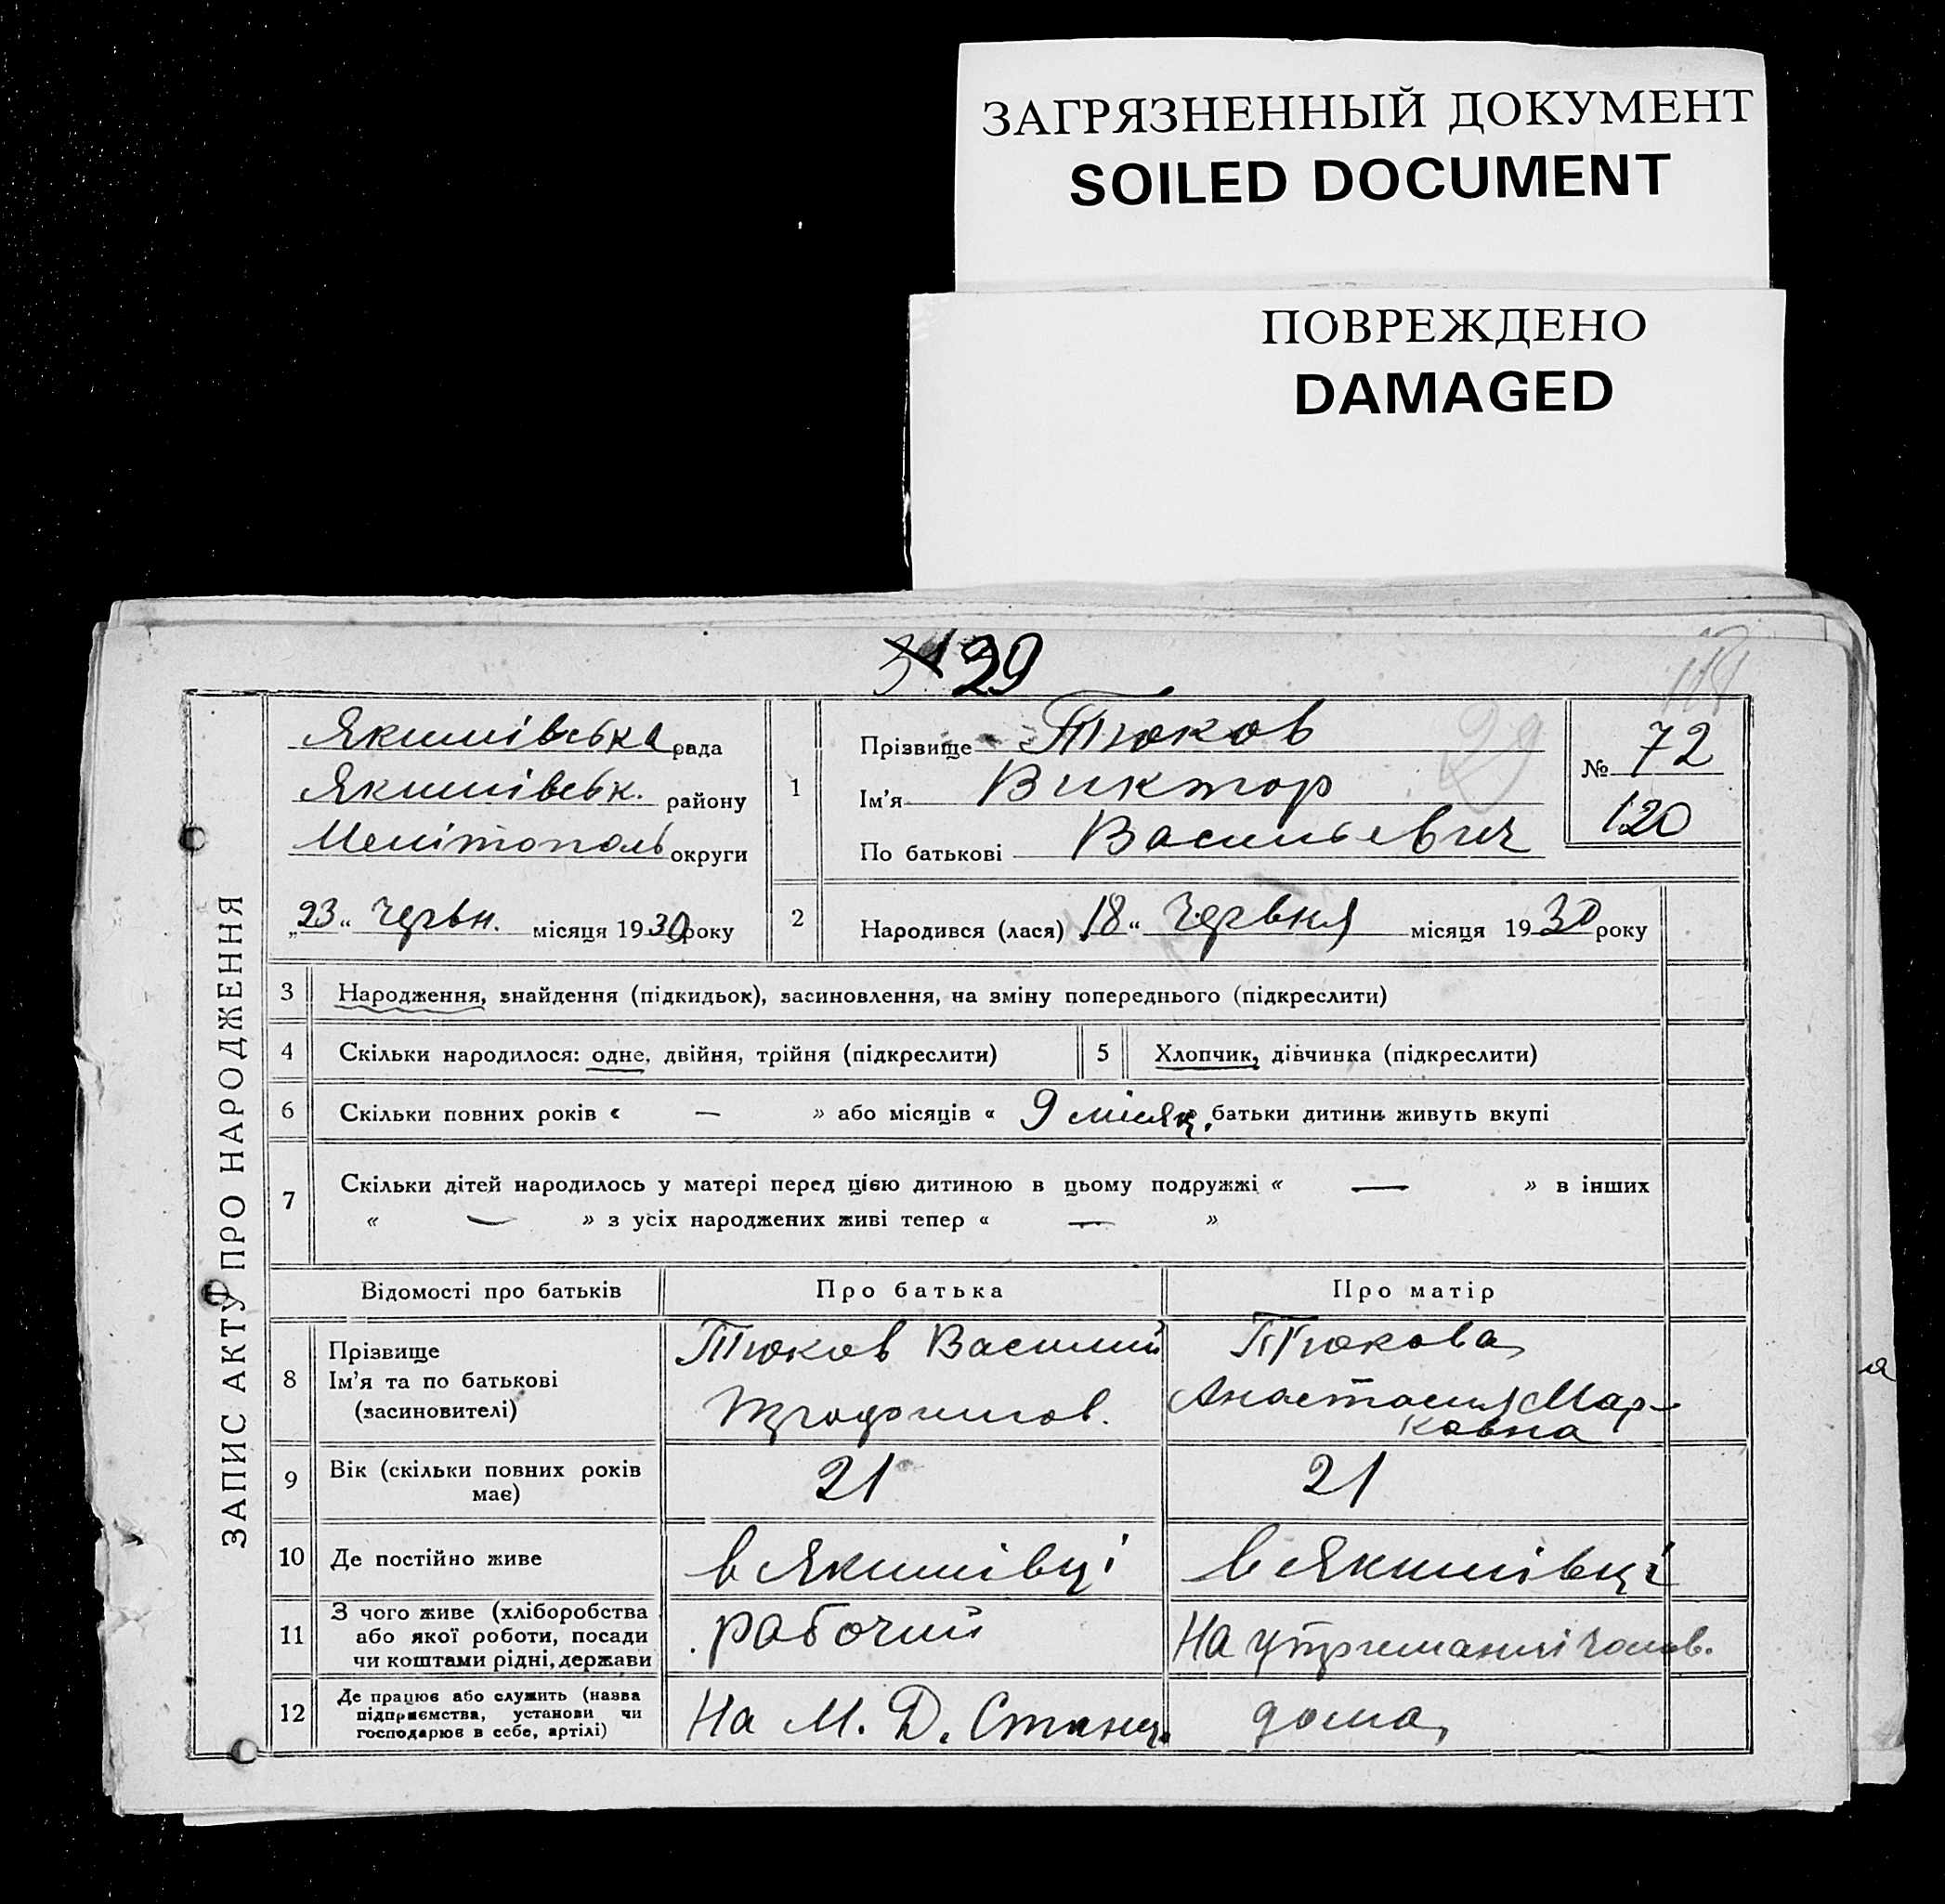 ЗАГРЯЗНЕННЫЙ ДОКУМЕНТ
SOILED DOCUMENT
ПОВРЕЖДЕНО
DAMAGED
29
118
ЗАПИС АКТУ ПРО НАРОДЖЕННЯ
Якимівська рада
Якимівськ. району
Мелітополь округи
„23“ червн. місяця 1930 року
1
Прізвище Тюков
Ім'я Виктор
По батькові Васильевич
29
№ 72
120
2
Народився (лася) „18“ Червня місяця 1930 року
3 Народження, знайдення (підкидьок), засиновлення, на зміну попереднього (підкреслити)
4 Скільки народилося: одне, двійня, трійня (підкреслити)
5 Хлопчик, дівчинка (підкреслити)
6 Скільки повних років « — » або місяців « 9 місяц. батьки дитини живуть вкупі
7 Скільки дітей народилось у матері перед цією дитиною в цьому подружжі « — » в інших
« — » з усіх народжених живі тепер « — »
Відомості про батьків Про батька Про матір
8 Прізвище
Ім'я та по батькові
(засиновителі)
Тюков Василий
Тюкова
Анастасия Мар-
ковна
9 Вік (скільки повних років
має)
21 21
10 Де постійно живе в Якимівці в Якимівці
11 З чого живе (хліборобства
або якої роботи, посади
чи коштами рідні, держави
рабочий На утриманні чолов.
12 Де працює або служить (назва
підприємства, установи чи
господарює в себе, артілі)
На М. Д. Станц. дома